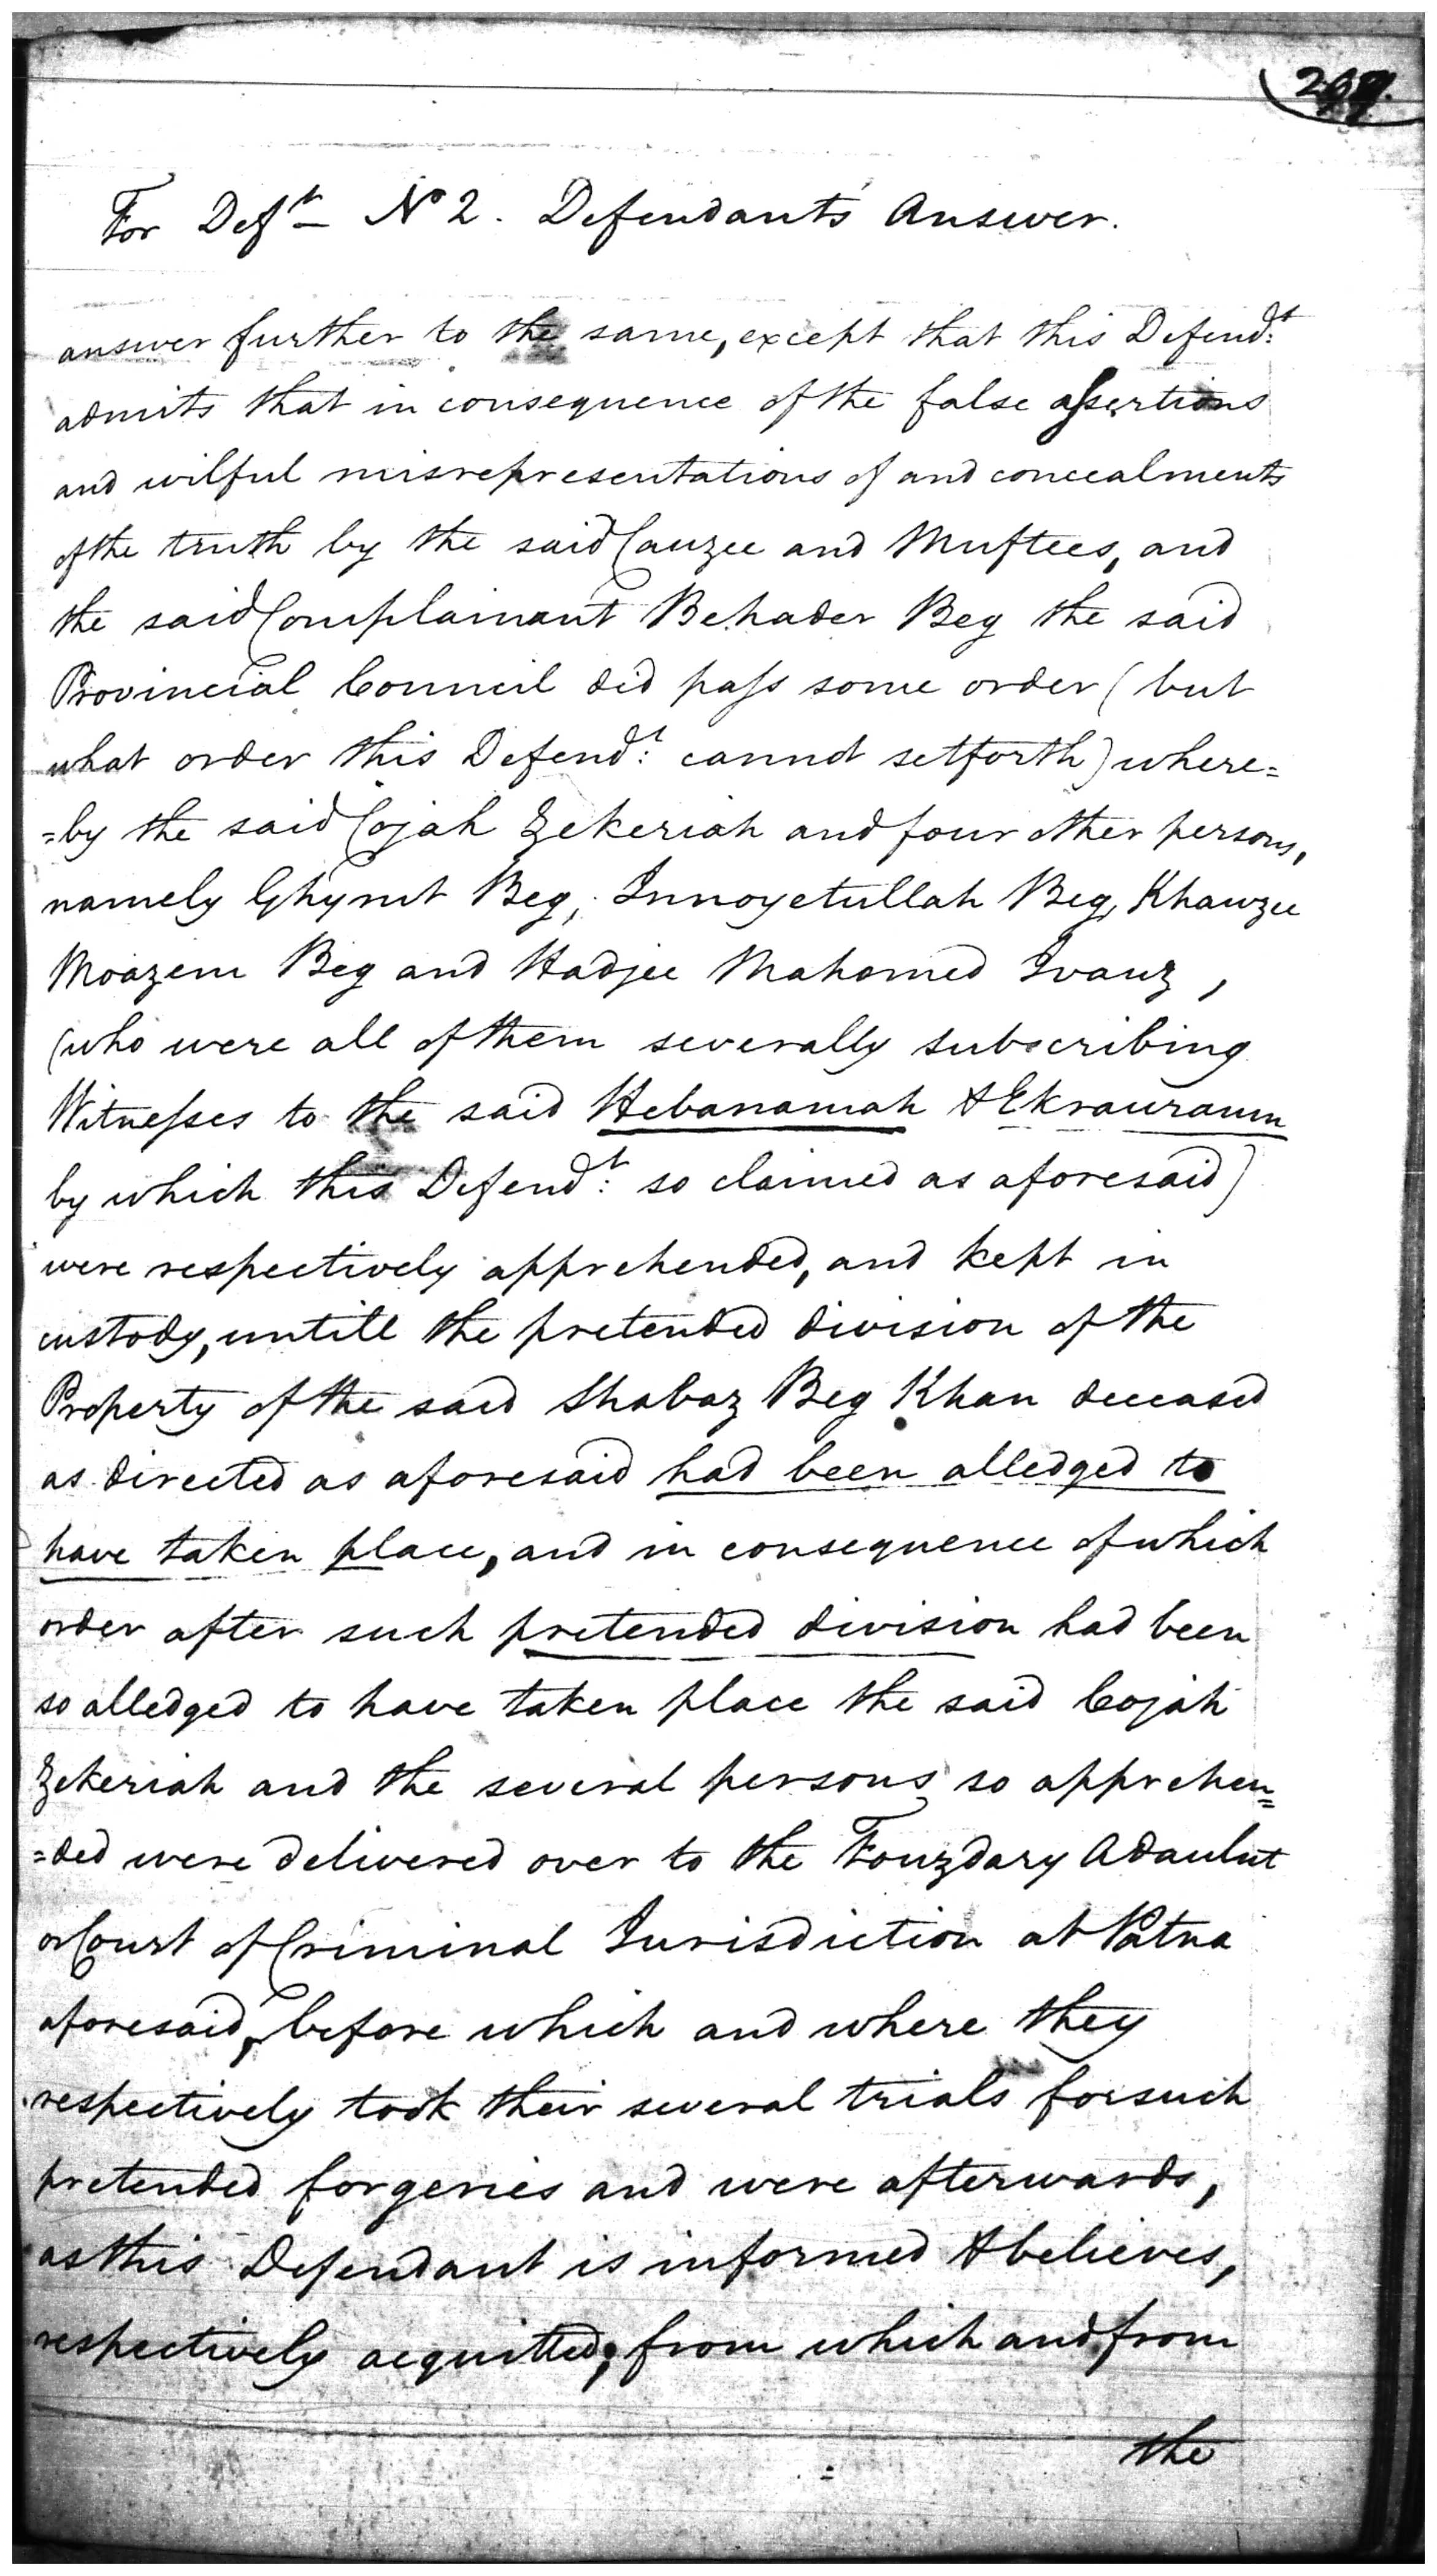 For Deft No 2. Defendants Answer.
answer further to the same, except that this Defend:t
admits that in consequence of the false assertions
and wilful misrepresentations of and concealments
of the truth by the said Cauzee and Muftees, and
the said Complainant Behader Beg the said
Provincial Council did pass some order (but
what order this Defend:t cannot setforth) where=
=by the said Cojah Zekeriah and four other persons,
namely Ghynut Beg, Innoyetullah Beg, Khawzee
Moazem Beg and Hadjee Mahomed Ivauz,
(who were all of them severally subscribing
Witnesses to the said Hebanamah & Ekrauraum
by which this Defend:t so claimed as aforesaid)
were respectively apprehended, and kept in
custody, untill the pretended division of the
Property of the said Shabaz Beg Khan deceased
as directed as aforesaid had been alledged to
have taken place, and in consequence of which
order after such pretended division had been
so alledged to have taken place the said Cojah
Zekeriah and the several persons so apprehen=
=ded were delivered over to the Fouzdary Adaulut
or Court of Criminal Jurisdiction at Patna
aforesaid, before which and where they
respectively took their several trials for such
pretended forgeries and were afterwards,
as this Defendant is informed & believes,
respectively acquitted; from which and from
the